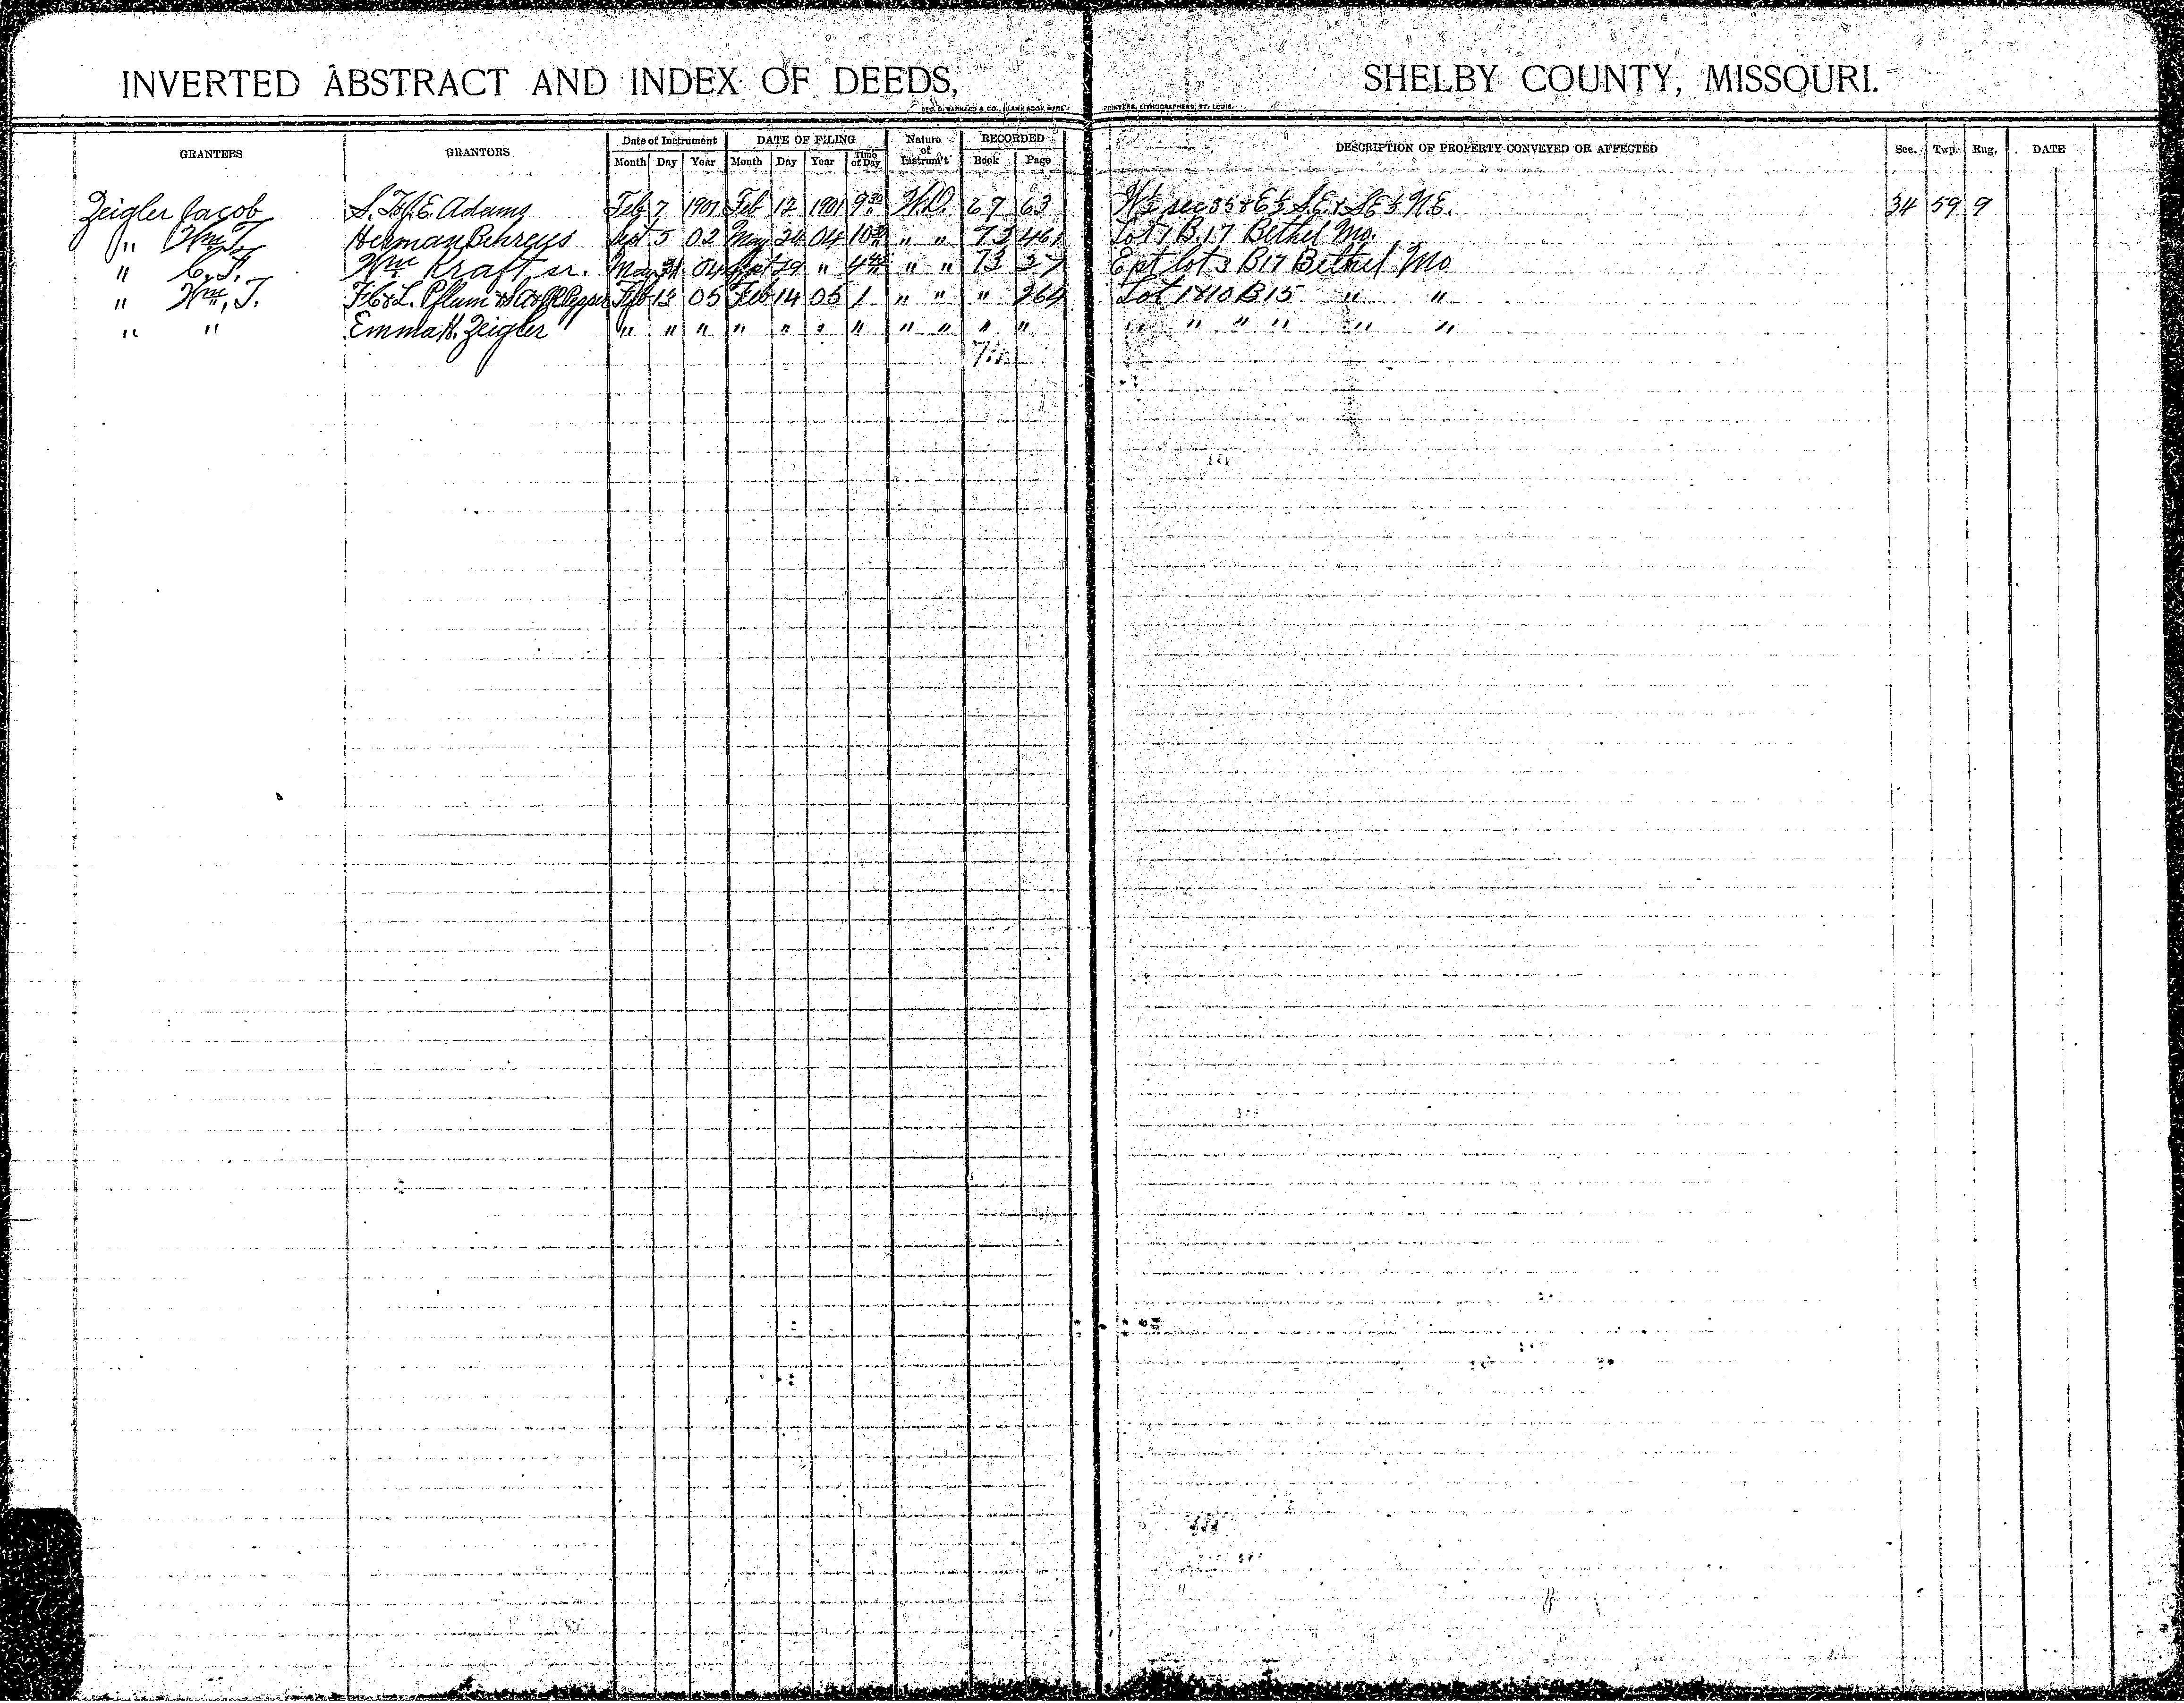 INVERTED ABSTRACT AND INDEX OF DEEDS, SHELBY COUNTY, MISSOURI.
GEO. D. BARNARD & CO., BLANK BOOK MFRS. PRINTERS, LITHOGRAPHERS, ST. LOUIS.
GRANTEES GRANTORS Date of Instrument DATE OF FILING Nature of Instrum't RECORDED DESCRIPTION OF PROPERTY CONVEYED OR AFFECTED Sec. Twp. Rng. DATE
Month Day Year Month Day Year Time of Day Book Page
Zeigler Jacob Adams Feb 7 1901 Feb 12 1901 9 30 W.D. 67 63 W½ sec 35 & E½ S.E. & S.E. N.E. 34 59 9
" Wm T. Herman Behrens Sept 5 02 May 24 04 10 " " 73 461 Lot 7 B.17 Bethel Mo.
" C.F. Wm Kraft, sr. May 31 04 Sept 29 " 4 " " 73 27 E pt lot 3 B17 Bethel Mo
" Wm, T. F.C. & L. Pflum Feb 13 05 Feb 14 05 1 " " " 264 Lot 1&10 B15 " "
" " Emma H. Zeigler " " " " " " " " " " " " " " " "